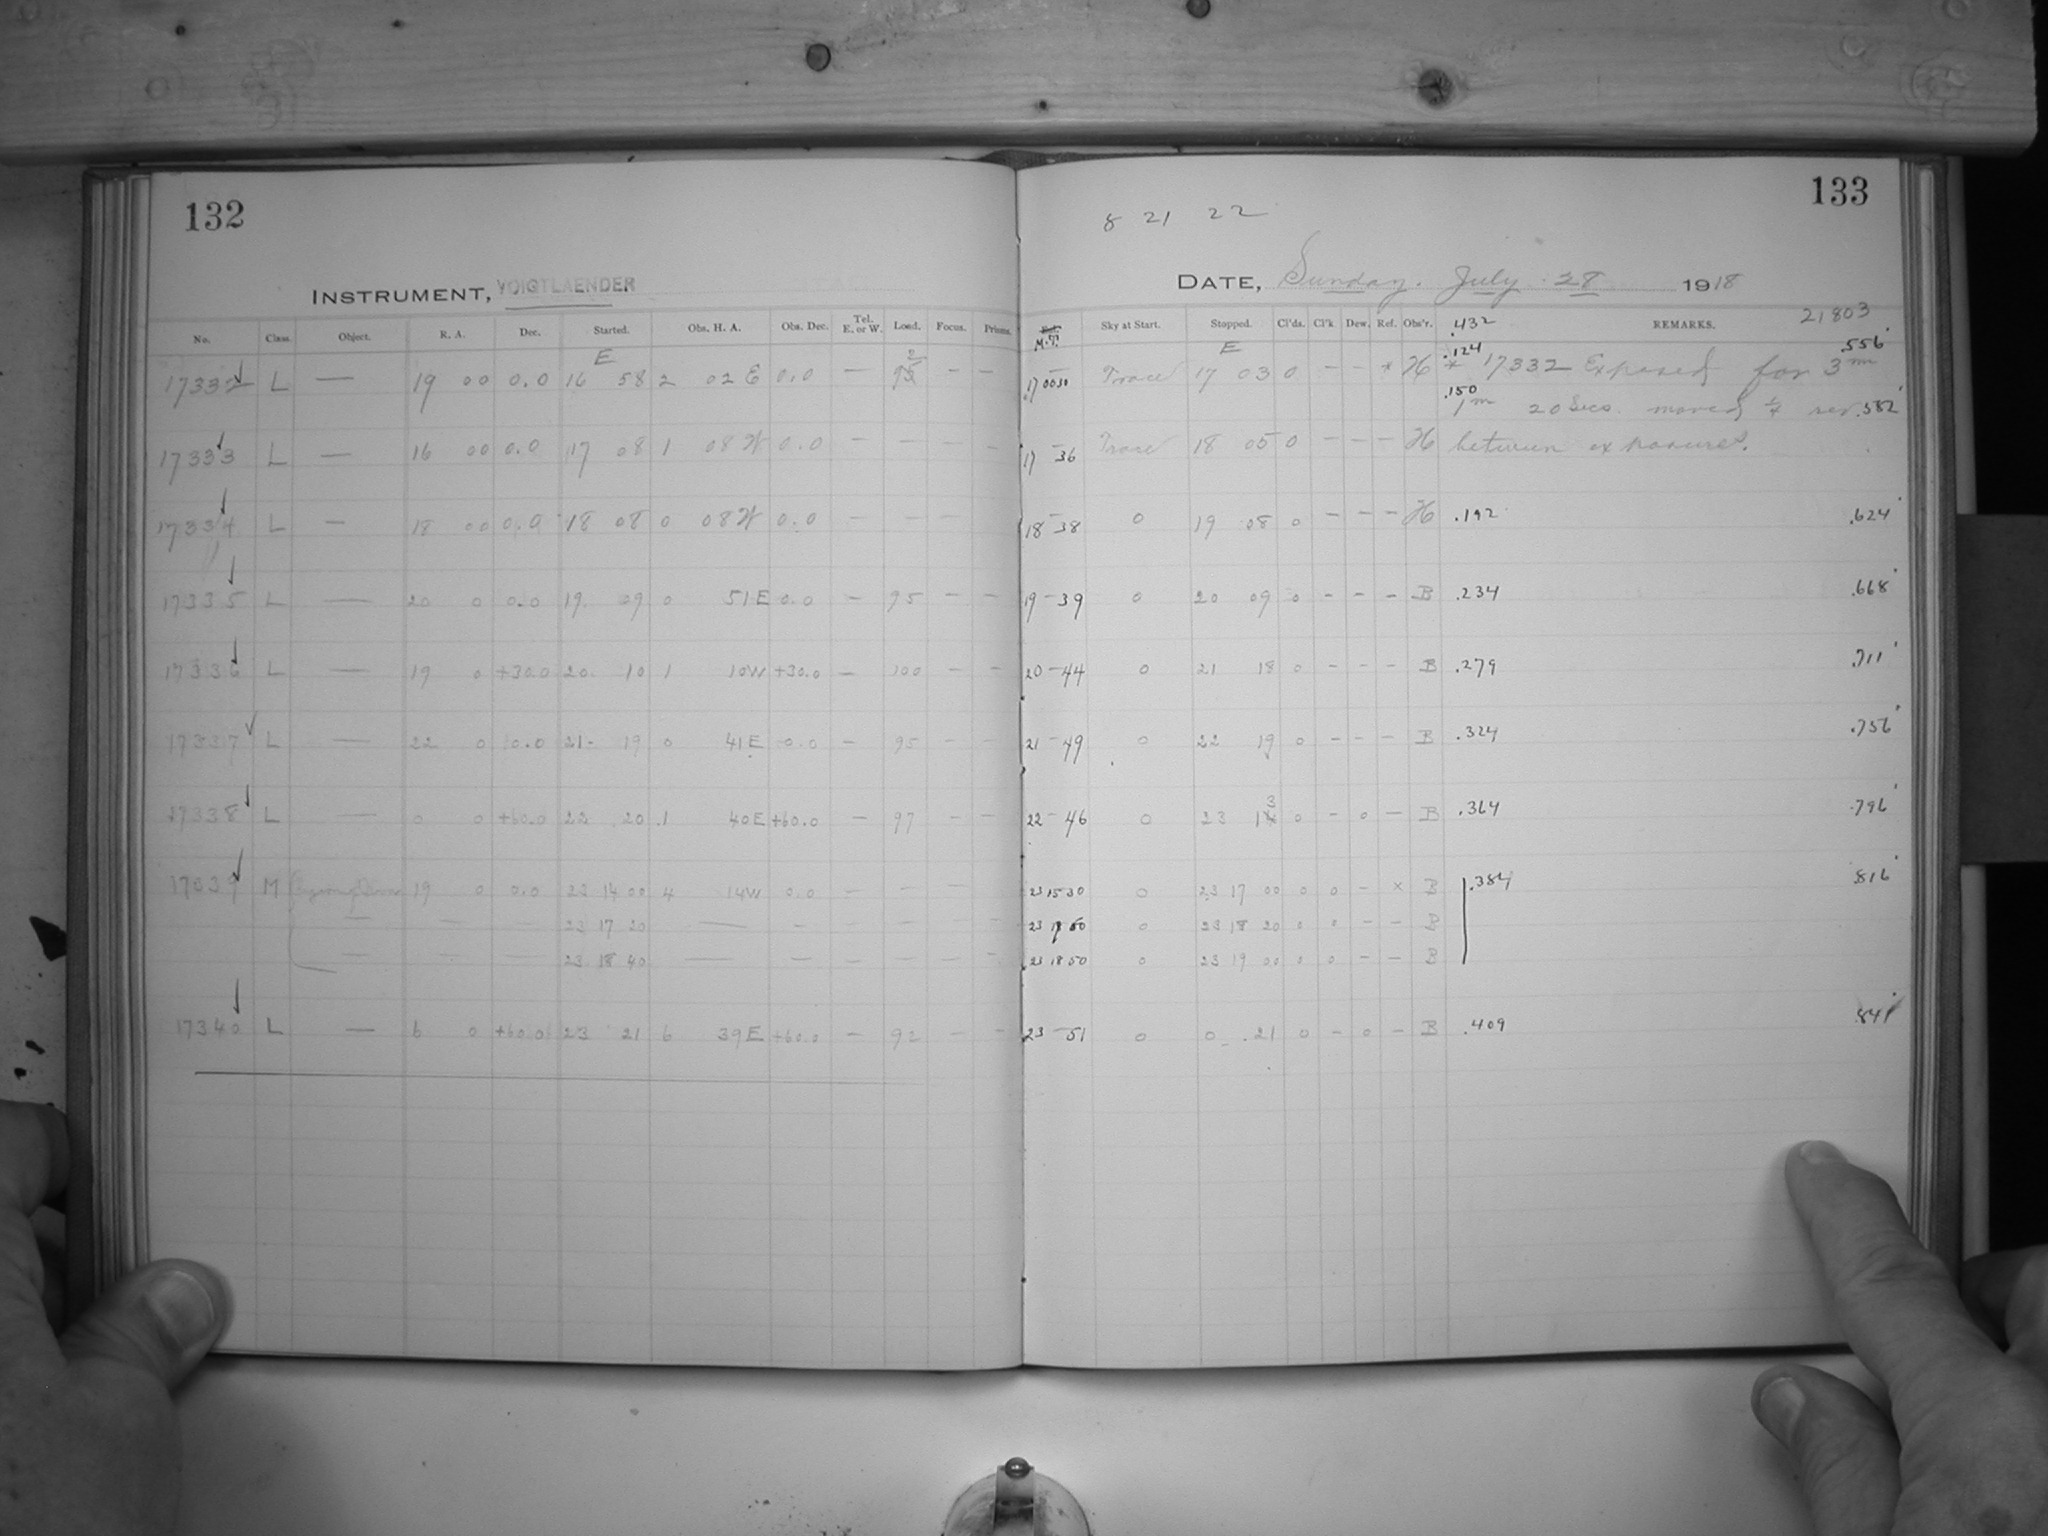 132
133
8 21 22
INSTRUMENT, VOIGTLAENDER
DATE, Sunday. July 28 1918
No. Class. Object. R. A. Dec. Started. Obs. H. A. Obs. Dec. Tel. E. or W. Load. Focus. Prisms. M.T. Sky at Start. Stopped. Cl'ds. Cl'k Dew. Ref. Obs'r. .432 REMARKS. 21803
E E .124 .556
17332 L — 19 00 0.0 16 58 2 02 E 0.0 — — — 17 00 30 Trace 17 03 0 — — * H * 17332 Exposed for 3 m
.150 1 m 20 Secs. moved ¼ rev .582
17333 L — 16 00 0.0 17 08 1 08 W 0.0 — — — — 17 36 Trace 18 05 0 — — — H between exposures.
17334 L — 18 00 0.0 18 08 0 08 W 0.0 — — — 18 38 0 19 08 0 — — — H .192 .624
17335 L — 20 0 0.0 19 09 0 51 E 0.0 — 95 — — 19 39 0 20 09 0 — — — B .234 .668
17336 L — 19 0 +30.0 20 10 1 10 W +30.0 — 100 — — 20 44 0 21 18 0 — — — B .279 .711
17337 L — 22 0 0.0 21 19 0 41 E 0.0 — 95 — — 21 49 0 22 19 0 — — — B .324 .756
17338 L — 0 0 +60.0 22 20 1 40 E +60.0 — 97 — — 22 46 0 23 13 0 — 0 — B .364 .796
17039 M 19 0 0.0 23 14 00 4 14 W 0.0 — — — 23 15 30 0 23 17 00 0 0 — × B .384 .816
— — — 23 17 20 — — — — — — 23 0 23 18 20 0 0 — — B
— — — 23 18 40 — — — — — — 23 18 50 0 23 19 00 0 0 — — B
17340 L — 6 0 +60.0 23 21 6 39 E +60.0 — 92 — — 23 51 0 0 21 0 — 0 — B .409 .841